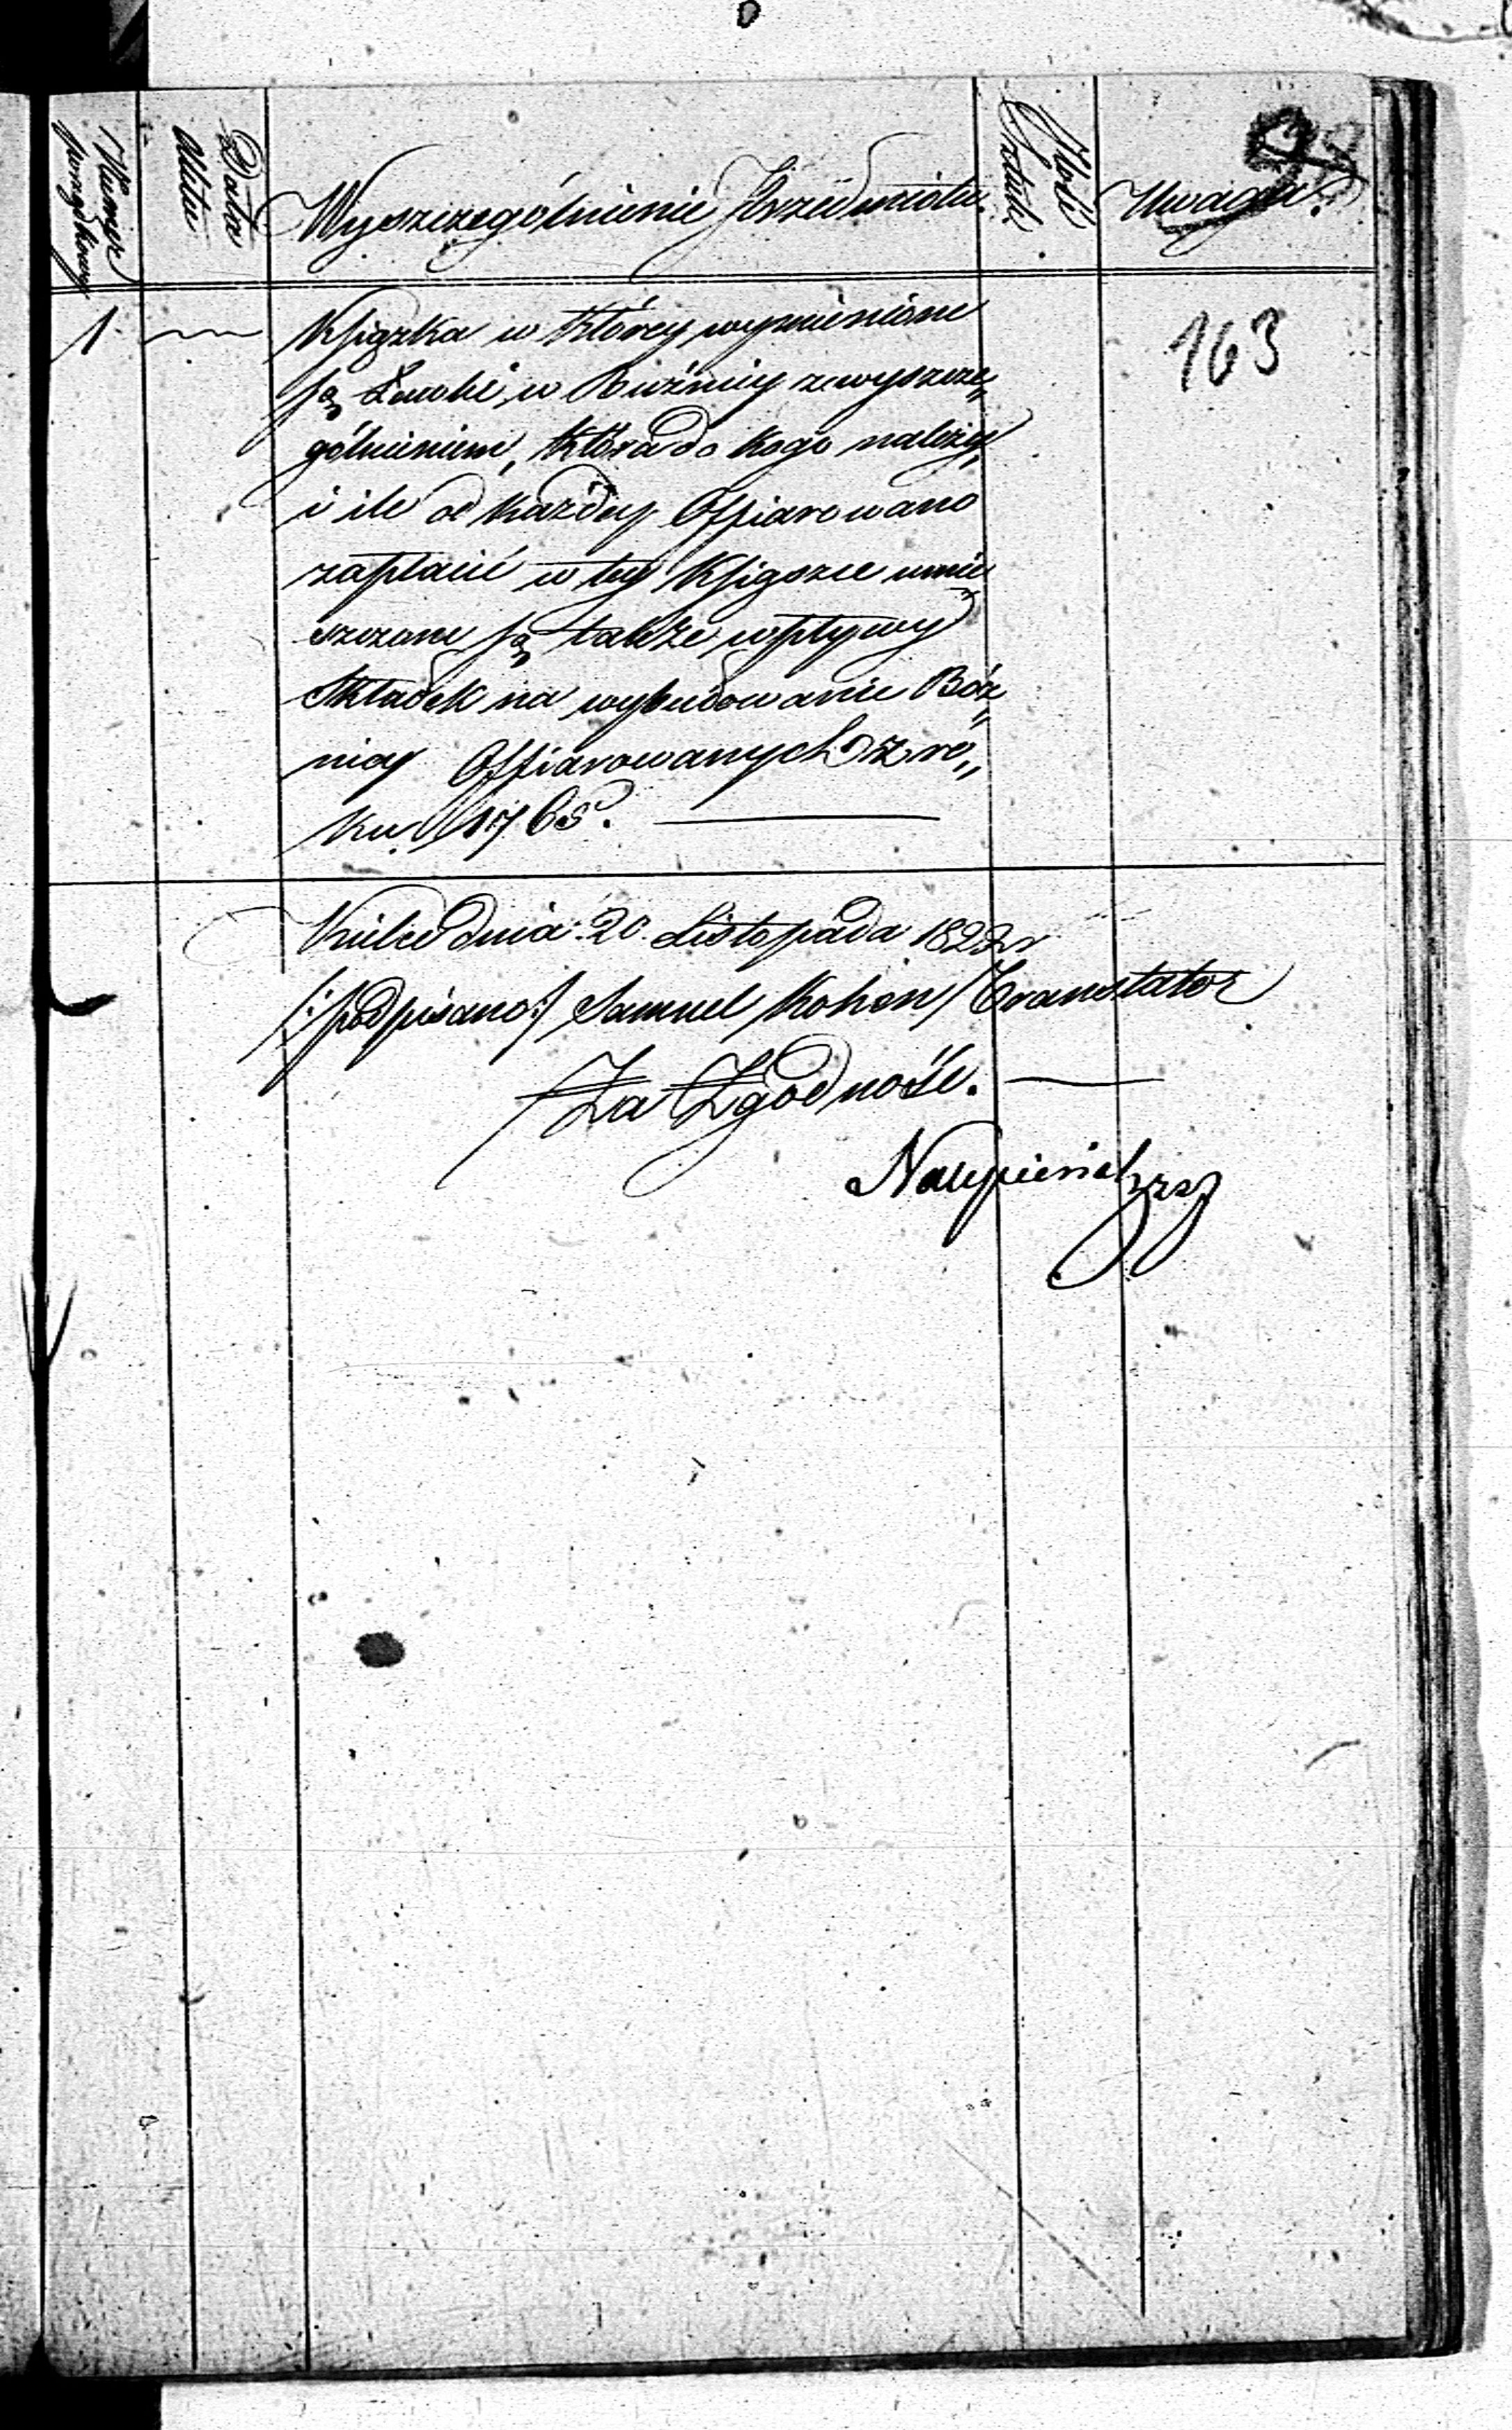 Numer porządkowy
Data Aktu
Wyszczególnienie Przedmiotu.
Ilość Sztuk.
Uwaga.
1
163
Książka w którey wymienione
są Ławki w Bużnicy zewyszcze„
gólnieniem, która do kogo należy,
i ile od każdey Offiarowano
zapłacić w tey Książce umie„
szczone są także wpływy
składek na wybudowanie Bóż„
nicy Offiarowanych z ro„
ku 1768.
dnia 20. Listopada 182
/:podpisano:/ Samuel Kohen Translator
Za Zgodność.